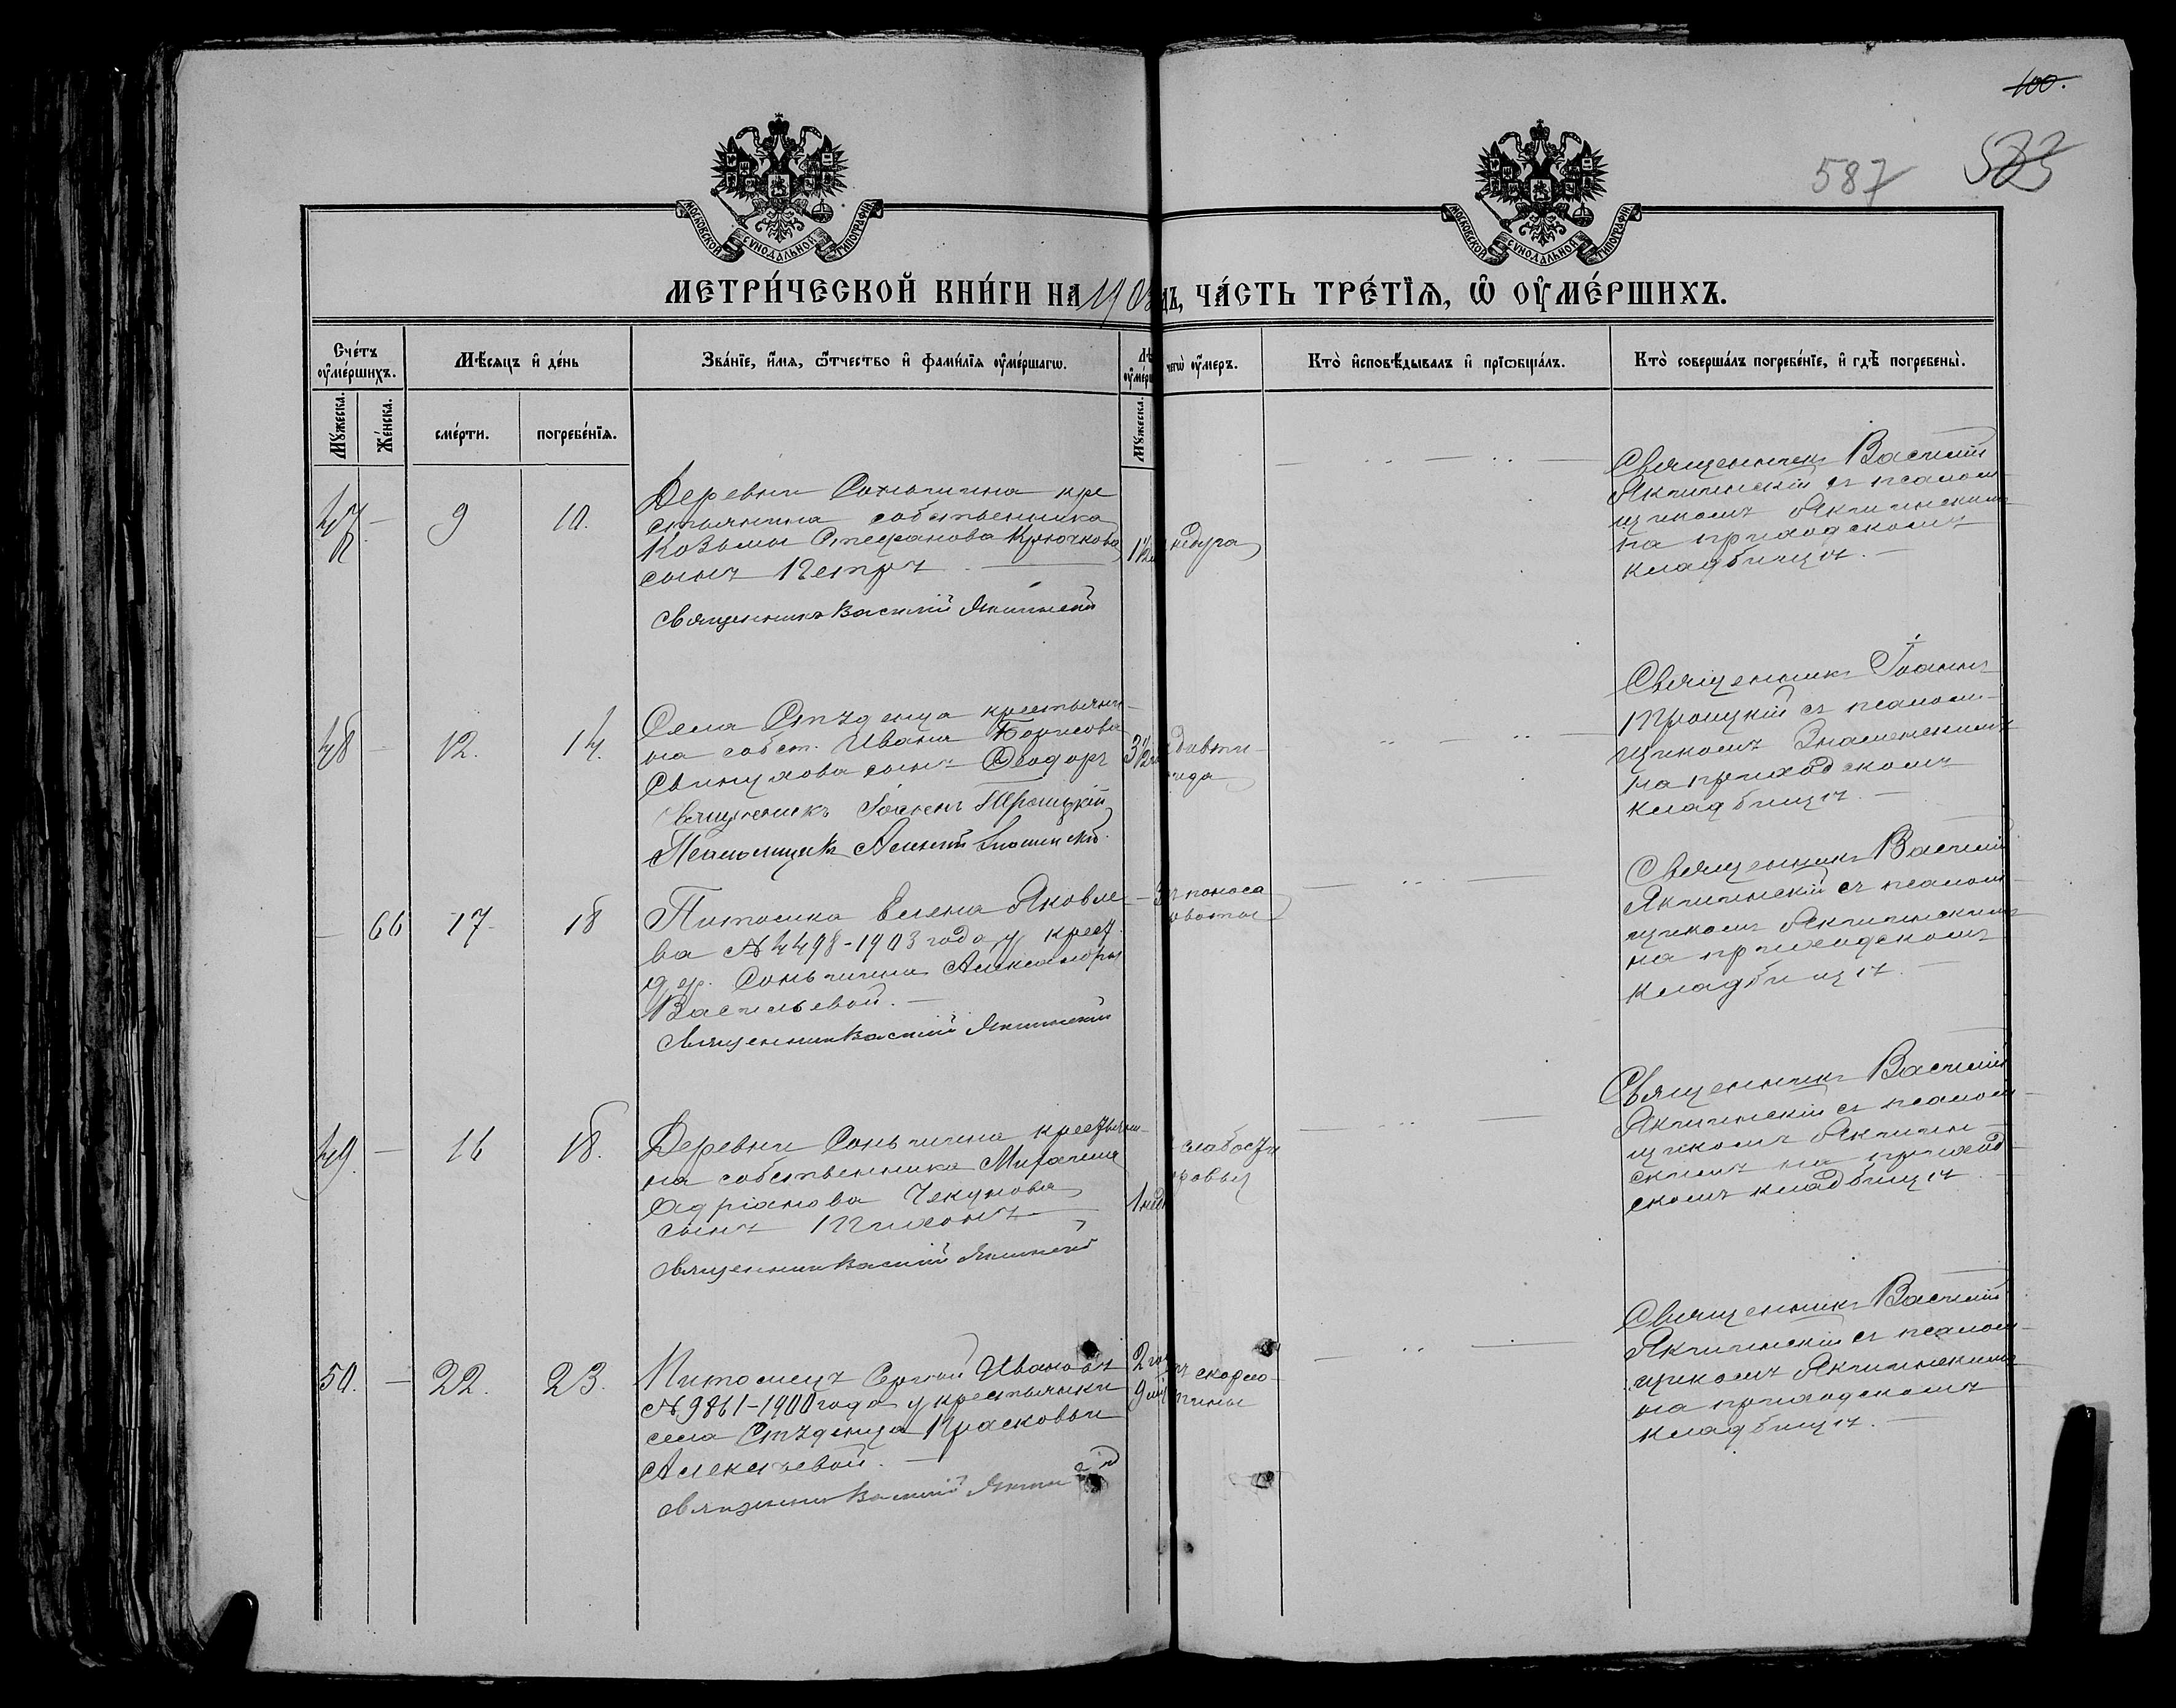 100.
587 583
МОСКОВСКОЙ СУНОДАЛЬНОЙ ТИПОГРАФІИ
МОСКОВСКОЙ СУНОДАЛЬНОЙ ТИПОГРАФІИ
МЕТРИ́ЧЕСКОЙ КНИ́ГИ НА 1903 ДЪ, ЧА́СТЬ ТРЕ́ТІѦ, Ѡ ОУМЕ́РШИХЪ.
Сче́тъ оумершихъ.
Мꙋжеска.
Же́нска.
Мѣсяцъ и де́нь
сме́рти.
погребе́нїѧ.
Зва́нїе, и́мѧ, ѻ҆тчество и фами́лїѧ оумершагѡ.
Мꙋжеска.
чегѡ̀ оумеръ.
Кто̀ исповѣдывалъ и прїѡбща́лъ.
Кто̀ соверша́лъ погребе́нїе, и гдѣ̀ погребены̀.
47 - 9 10.
Деревни Соньтина кре
стьянина собственника
Козьмы Стефанова Крючкова
сынъ Петръ
Священникъ Василій Якиминскій
1½
недуга
Священникъ Василій
Якиминскій съ псалом
щикомъ Якиминскимъ
на приходскомъ
кладбищѣ.
48 - 12. 14.
Села Студенца крестьяни-
на собст. Ивана Борисова
Свинухова сынъ Ѳеодоръ
Священникъ Іоаннъ Троицкій
Псаломщикъ Алексій Знаменскій.
3½
Священникъ Іоаннъ
Троицкій съ псалом-
щикомъ Знаменскимъ
на приходскомъ
кладбищѣ.
- 66 17. 18
Питомка Елена Яковле-
ва № 4498-1903 года у крест.
дер. Соньтина Александры
Васильевой.
Священникъ Василій Якиминскій
- 3
поноса
Священникъ Василій
Якиминскій съ псалом-
щикомъ Якиминскимъ
на приходскомъ
кладбищѣ.
49. - 16 18.
Деревни Соньтина крестьяни-
на собственника Михаила
Адріанова Чекунова
сынъ Тихонъ
Священникъ Василій Якиминскій
1 нед
слабости
Священникъ Василій
Якиминскій съ псалом-
щикомъ Якимин-
скимъ на приход-
скомъ кладбищѣ
50. - 22. 23.
Питомецъ Сергій Ивановъ
№ 9861-1900 года у крестьянки
села Студенца Прасковьи
Алексѣевой.
Священникъ Василій
2 го
9 мѣ
скарла-
тины
Священникъ Василій
Якиминскій съ псалом-
щикомъ Якиминскимъ
на приходскомъ
кладбищѣ.